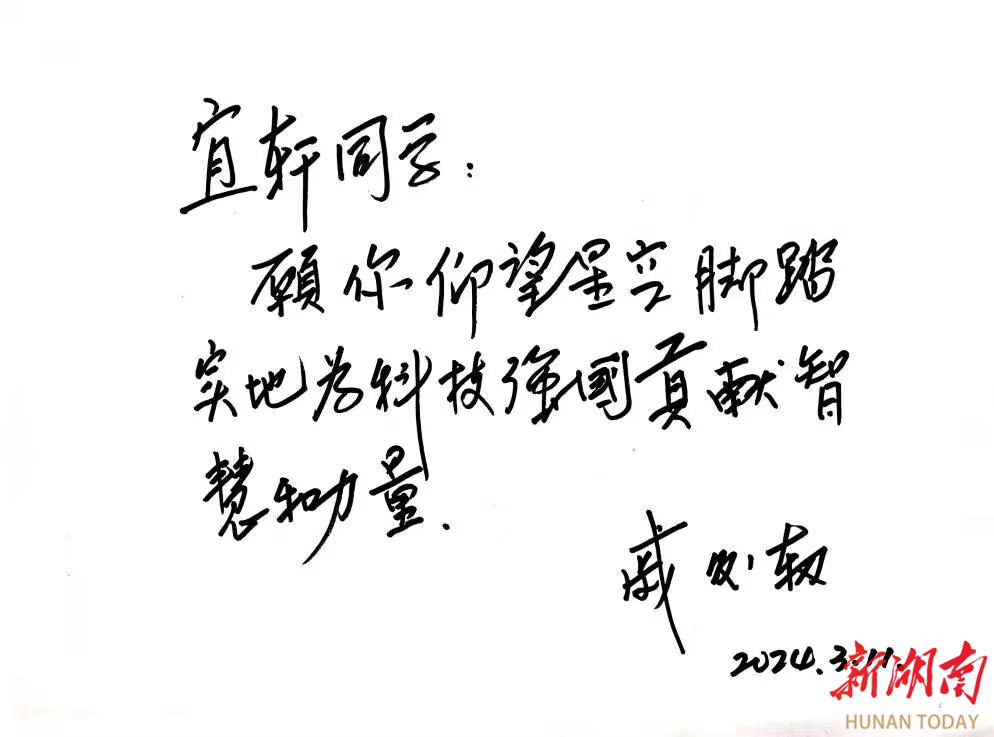 宜轩同学：
願你仰望星空脚踏
实地为科技强國貢献智
慧和力量.
戚发轫
2024.3.11.
新湖南
HUNAN TODAY